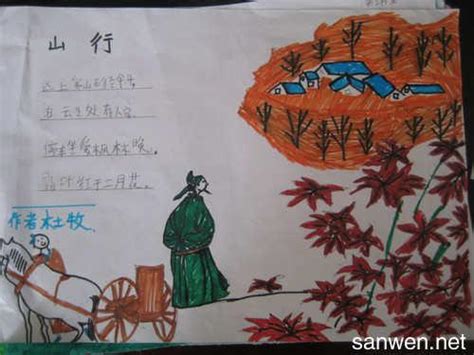 山行
远上寒山石径斜
白云生处有人家
停车坐爱枫林晚，
霜叶红于二月花。
作者杜牧
sanwen.net